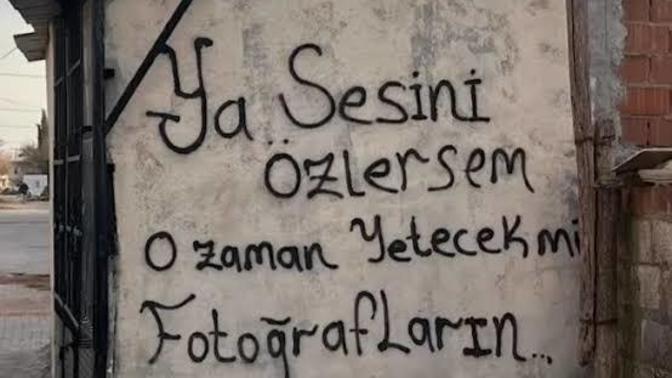 Ya Sesini
Özlersem
O zaman Yetecek mi
Fotoğrafların...